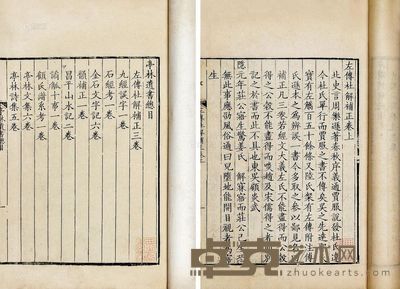 左傳杜解補正卷上
北史言周樂遜著春秋序義通賈服說發杜氏違
今杜氏單行而賈服之書不傳矣吳之先達邵氏
寶有左觿百五十餘條又陸氏粲有左傳附注傅
氏遜本之為辨誤一書今多取之參以鄙見名曰
補正凡三卷若經文大義左氏不能盡得而公穀
得之公穀不能盡得而啖趙及宋儒得之者則別
記之於書而此不具也東吳顧炎武
隱元年莊公寤生驚姜氏 解寐寤而莊公已生恐
無此事應劭風俗通曰兒墮地能開目視者為寤
生
亭林遺書總目
左傳杜解補正三卷
九經誤字一卷
石經考一卷
金石文字記六卷
韻補正一卷
昌平山水記二卷
譎觚十事一卷
顧氏譜系考一卷
亭林文集六卷
亭林詩集五卷
卓克艺术网
zhuokearts.com